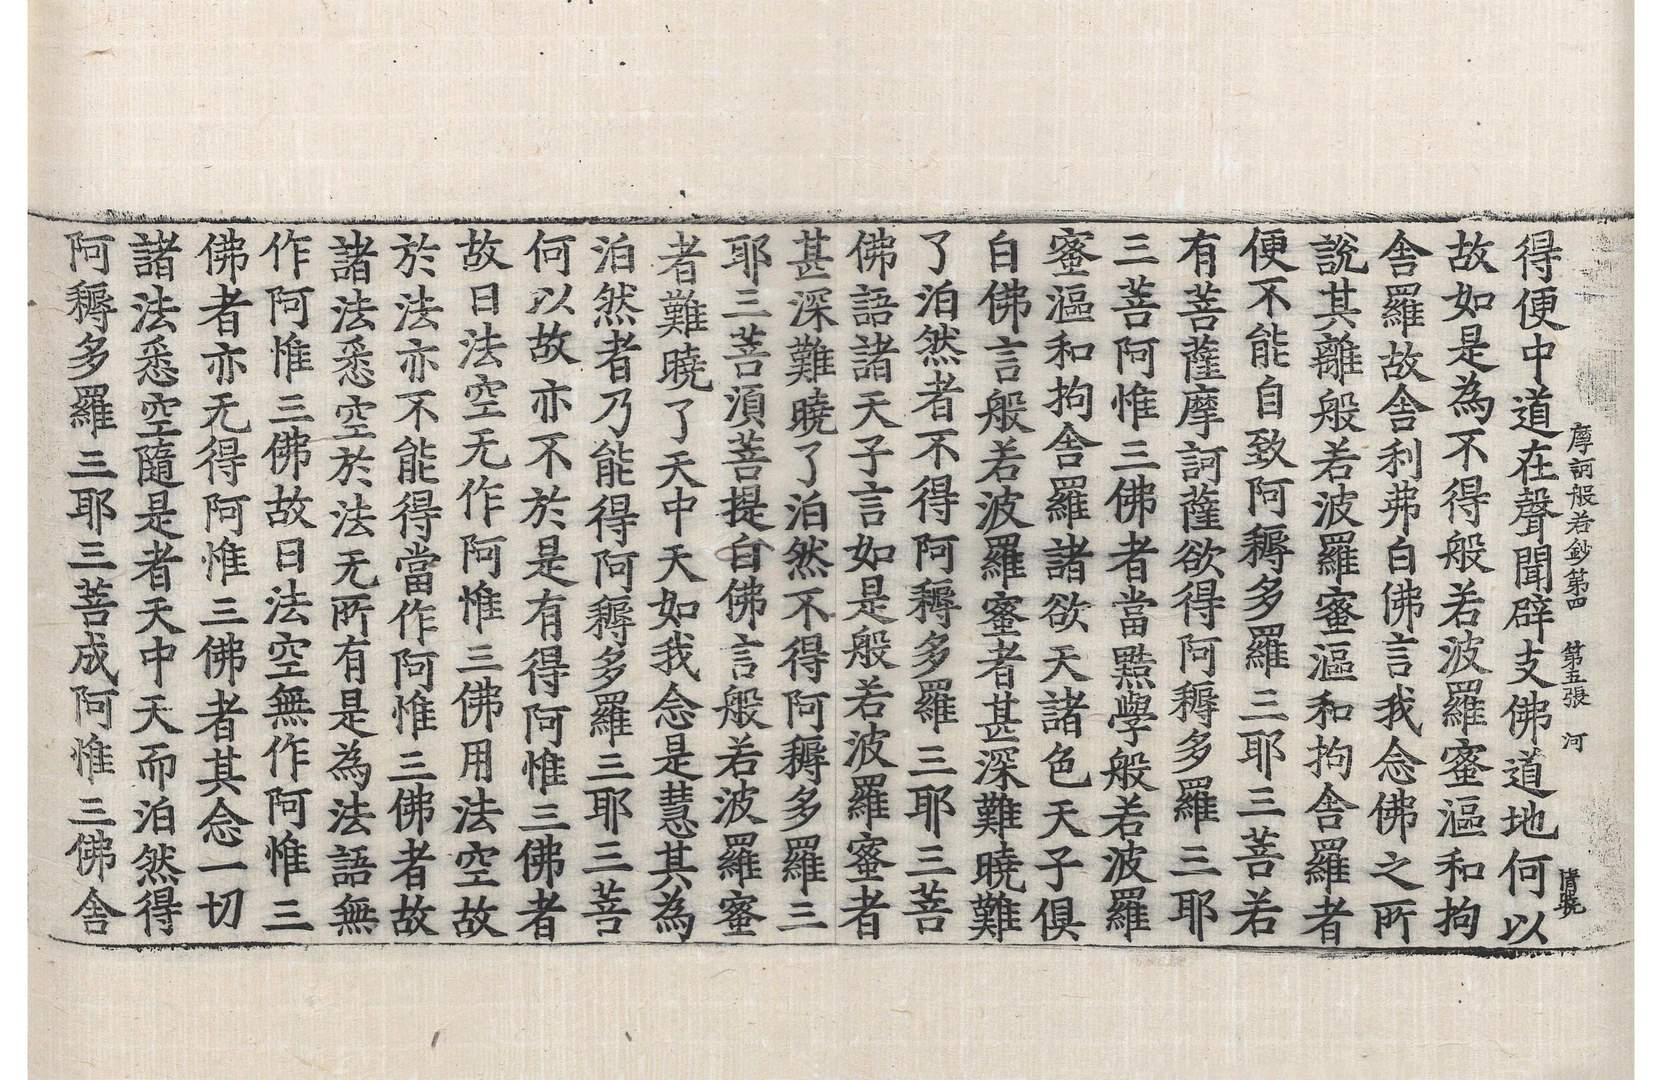 摩訶般若鈔第四 第五張 河
得便中道在聲聞辟支佛道地何以
故如是為不得般若波羅蜜漚和拘
舍羅故舍利弗白佛言我念佛之所
說其離般若波羅蜜漚和拘舍羅者
便不能自致阿耨多羅三耶三菩若
有菩薩摩訶薩欲得阿耨多羅三耶
三菩阿惟三佛者當黠學般若波羅
蜜漚和拘舍羅諸欲天諸色天子俱
白佛言般若波羅蜜者甚深難曉難
了泊然者不得阿耨多羅三耶三菩
佛語諸天子言如是般若波羅蜜者
甚深難曉了泊然不得阿耨多羅三
耶三菩須菩提白佛言般若波羅蜜
者難曉了天中天如我念是慧其為
泊然者乃能得阿耨多羅三耶三菩
何以故亦不於是有得阿惟三佛者
故曰法空无作阿惟三佛用法空故
於法亦不能得當作阿惟三佛者故
諸法悉空於法无所有是為法語無
作阿惟三佛故曰法空無作阿惟三
佛者亦无得阿惟三佛者其念一切
諸法悉空隨是者天中天而泊然得
阿耨多羅三耶三菩成阿惟三佛舍